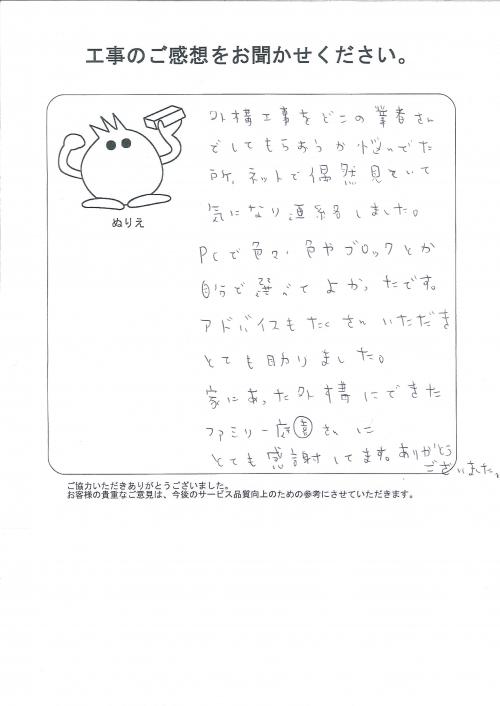 工事のご感想をお聞かせください。
外構工事をどこの業者さん
でしてもらおうか悩んでた
所、ネットで偶然見ていて
気になり連絡しました。
PCで色々、色やブロックとか
自分で選べてよかったです。
アドバイスもたくさんいただき
とても助かりました。
家にあった外構にできた
ファミリー庭園さんに
とても感謝してます。ありがとう
ございました。
ぬりえ
ご協力いただきありがとうございました。
お客様の貴重なご意見は、今後のサービス品質向上のための参考にさせていただきます。